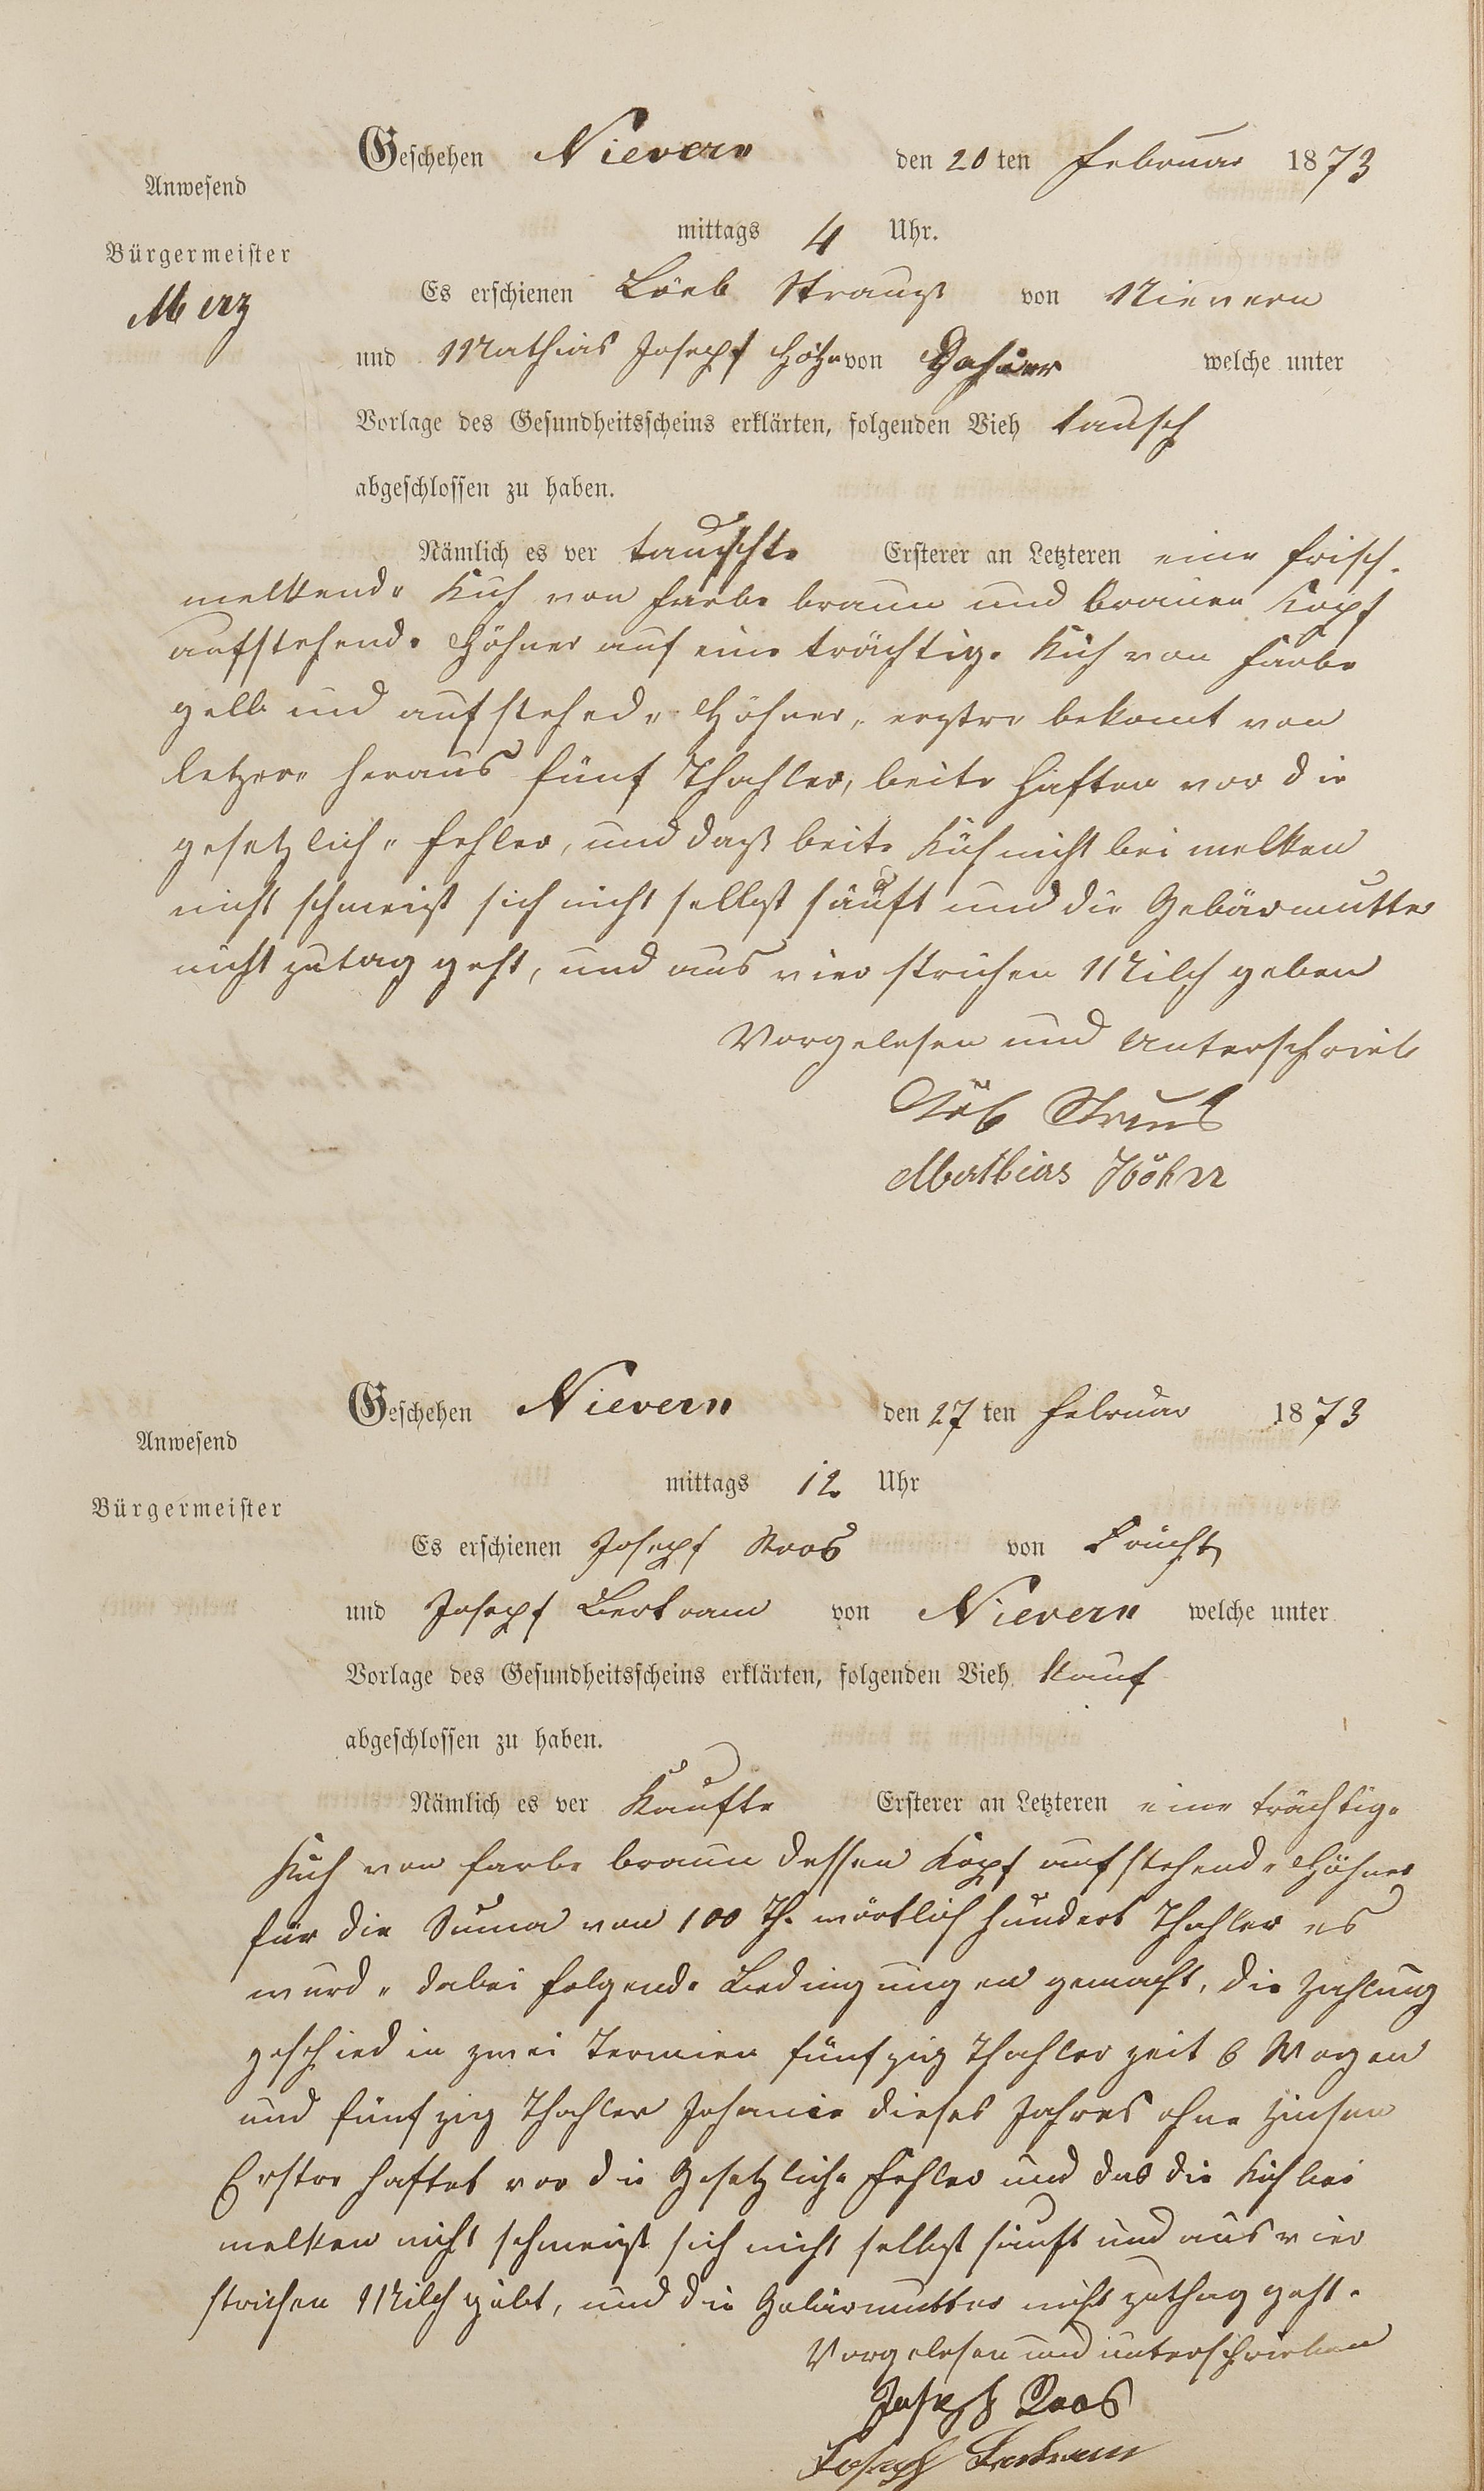 Geschehen Nievern den 20 ten Februar 1873
Anwesend
mittags 4 Uhr.
Bürgermeister
Merz
Es erschienen Löeb Strauß von Nievern
und Mathias Joseph Höhn von welche unter
Vorlage des Gesundheitsscheins erklärten, folgenden Vieh tausch
abgeschlossen zu haben.
Nämlich es ver tauschte Ersterer an Letzteren eine frisch-
melkende Kuh von Farbe braun und braunen Kopf
aufstehende Höhner auf eine trächtige Kuh von Farbe
gelb und aufstehede Höhner, erstre bekomt von
letzere heraus fünf Thahler, beite haften vor die
gesetzliche Fehler, und daß beite Küh nicht bei melken
nicht schmeißt sich nicht selbst säuft und die Gebärmutter
nicht zutag geht, und aus vier strichen Milch geben
Vorgelesen und Unterschrieb
Löb Straus
Mathias Höhn
Geschehen Nievern den 27 ten Februar 1873
Anwesend
mittags 12 Uhr
Bürgermeister
Es erschienen Joseph Roos von Frücht
und Joseph Bertram von Nievern welche unter
Vorlage des Gesundheitsscheins erklärten, folgenden Vieh Kauf
abgeschlossen zu haben.
Nämlich es ver Kaufte Ersterer an Letzteren eine trächtige
Kuh von Farbe braun dessen Kopf aufstehende Höhner
für die Suma von 100 Th. wörtlich hundert Thahler es
wurde dabei folgende Bedingungen gemacht, die Zahlung
geschied in zwei Termien fünfzig Thahler zeit 6 Wogen
und fünfzig Thahler Johanie dieses Jahres ohne Zinsen
Erstre haftet vor die Gesetzliche Fehler und das die Kuh bei
melken nicht schmeißt sich nicht selbst säuft und aus vier
strichen Milch gibt, und die Gebärmutter nicht zuthag geht.
Vorgelesen und unterschrieben
Joseph Roos
Joseph Bertram